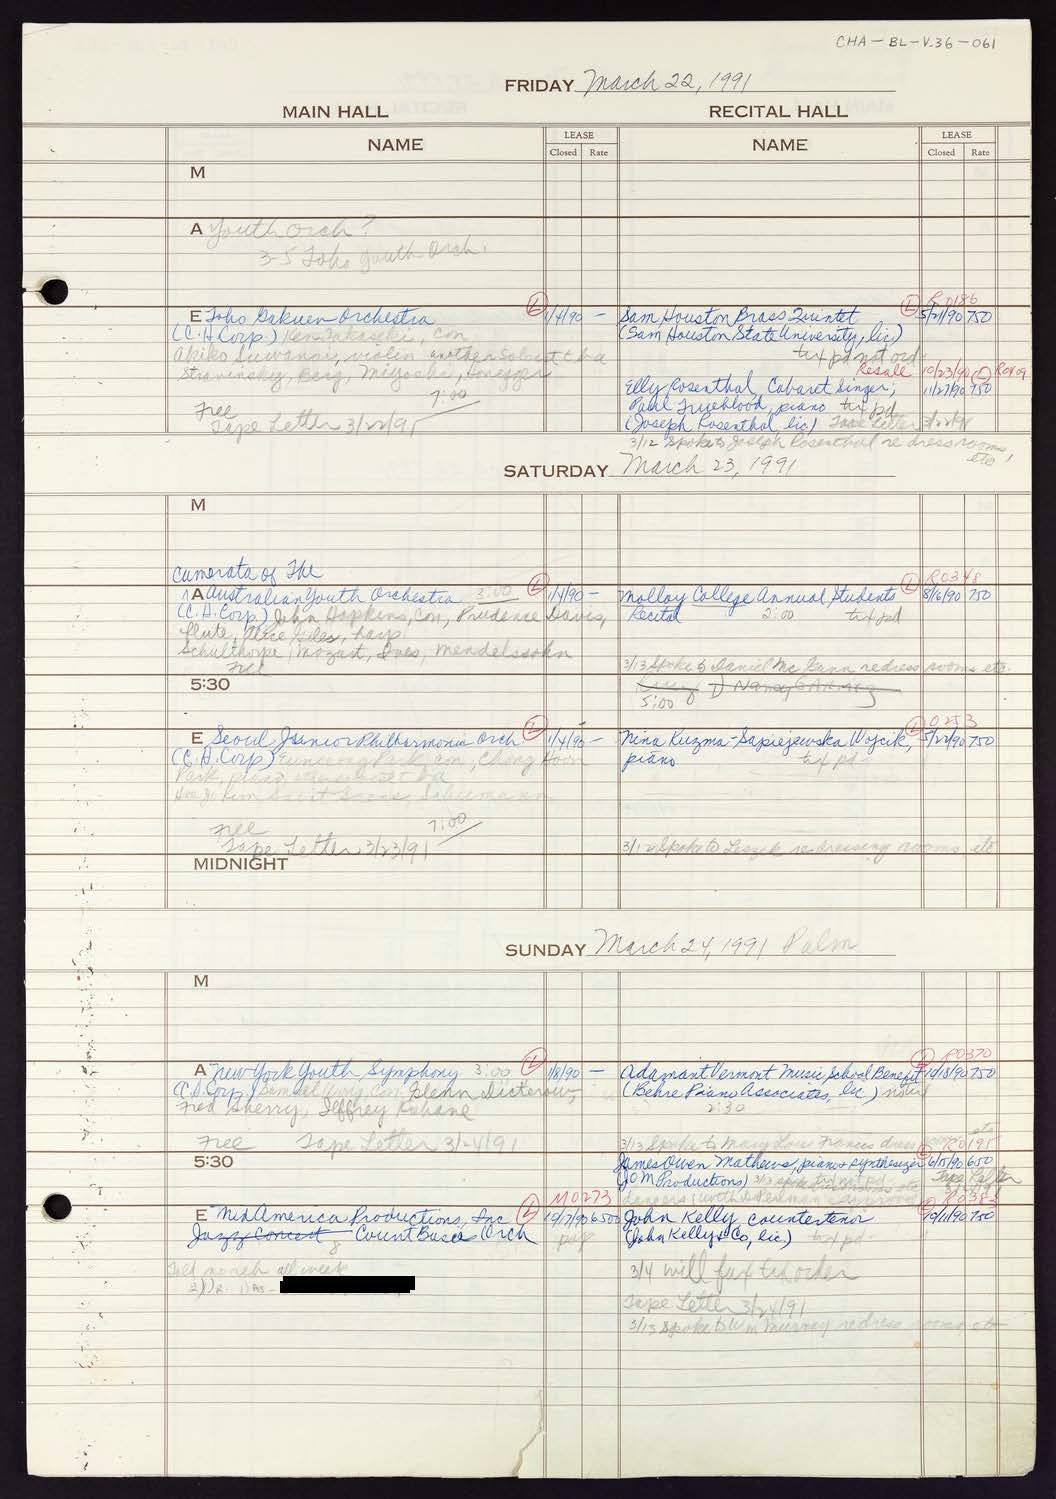 CHA-BL-V.36-061
FRIDAY March 22, 1991
MAIN HALL
RECITAL HALL
NAME
LEASE
Closed Rate
NAME
LEASE
Closed Rate
M
A Youth Orch?
3-5 Toho Youth Orch.
E Toho Gakuen Orchestra L 1/4/90 –
(C.H. Corp.) Ken Takaseki, con
Akiko Suwanai, violin another Soloist t b a
Stravinsky, Berg, Miyoshi, Honegger
7:00
Free
Tape Letter 3/22/91
R0186
Sam Houston Brass Quintet L 5/21/90 750
(Sam Houston State University, lic)
txt pd not ord
Resale 10/23/90 L R0409
Elly Rosenthal, Cabaret Singer; 11/27/90 750
Paul Trueblood, piano txt pd
(Joseph Rosenthal, lic) Tape Letter 3/22/91
3/12 Spoke to Joseph Rosenthal re dress rooms, etc
SATURDAY March 23, 1991
M
Camerata of The
A Australian Youth Orchestra 3:00 L 1/4/90 –
(C.H. Corp) John Hopkins, con, Prudence Davis,
flute, Alice Giles, harp
Schulthorpe, Mozart, Ives, Mendelssohn
Free
R0348
Molloy College Annual Students L 8/6/90 750
Recital 2:00 txt pd
3/13 Spoke to Daniel Mc Gann re dress rooms etc.
5:30
5:00
E Seoul Junior Philharmonic Orch L 1/4/90 –
(C.H. Corp) Park, con, Chong Hoon
Park, t b a
Schumann
7:00
Free
Tape Letter 3/23/91
0253
Nina Kuzma-Sapiejewska Wojcik, L 5/22/90 750
piano txt pd –
3/12 Spoke to Leszek re dressing rooms, etc
MIDNIGHT
SUNDAY March 24, 1991 Palm
M
A New York Youth Symphony 3:00 L 1/8/90 –
(C.H. Corp) Samuel Wong, Con, Glenn Dicterow,
Fred Sherry, Jeffrey Kahane
Free Tape Letter 3/24/91
R0370
Adamant Vermont Music School Benefit L 10/18/90 750
(Behre Piano Associates, lic)
2:30
3/13 Spoke to Mary Lou Francis dress rooms etc
5:30
R0195
James Owen Mathews, piano + synthesizer L 6/15/90 650
(JOM Productions) Tape Letter
R0383
M0273
E NihAmerica Productions, Inc L 10/17/90 6500
Jazz Concert Count Basie Orch
John Kelly countertenor 10/11/90 750
(John Kelly & Co, lic) txt pd –
3/4 will fax txt order
Tape Letter 3/24/91
3/13 Spoke to Wm Murray re dress rooms etc